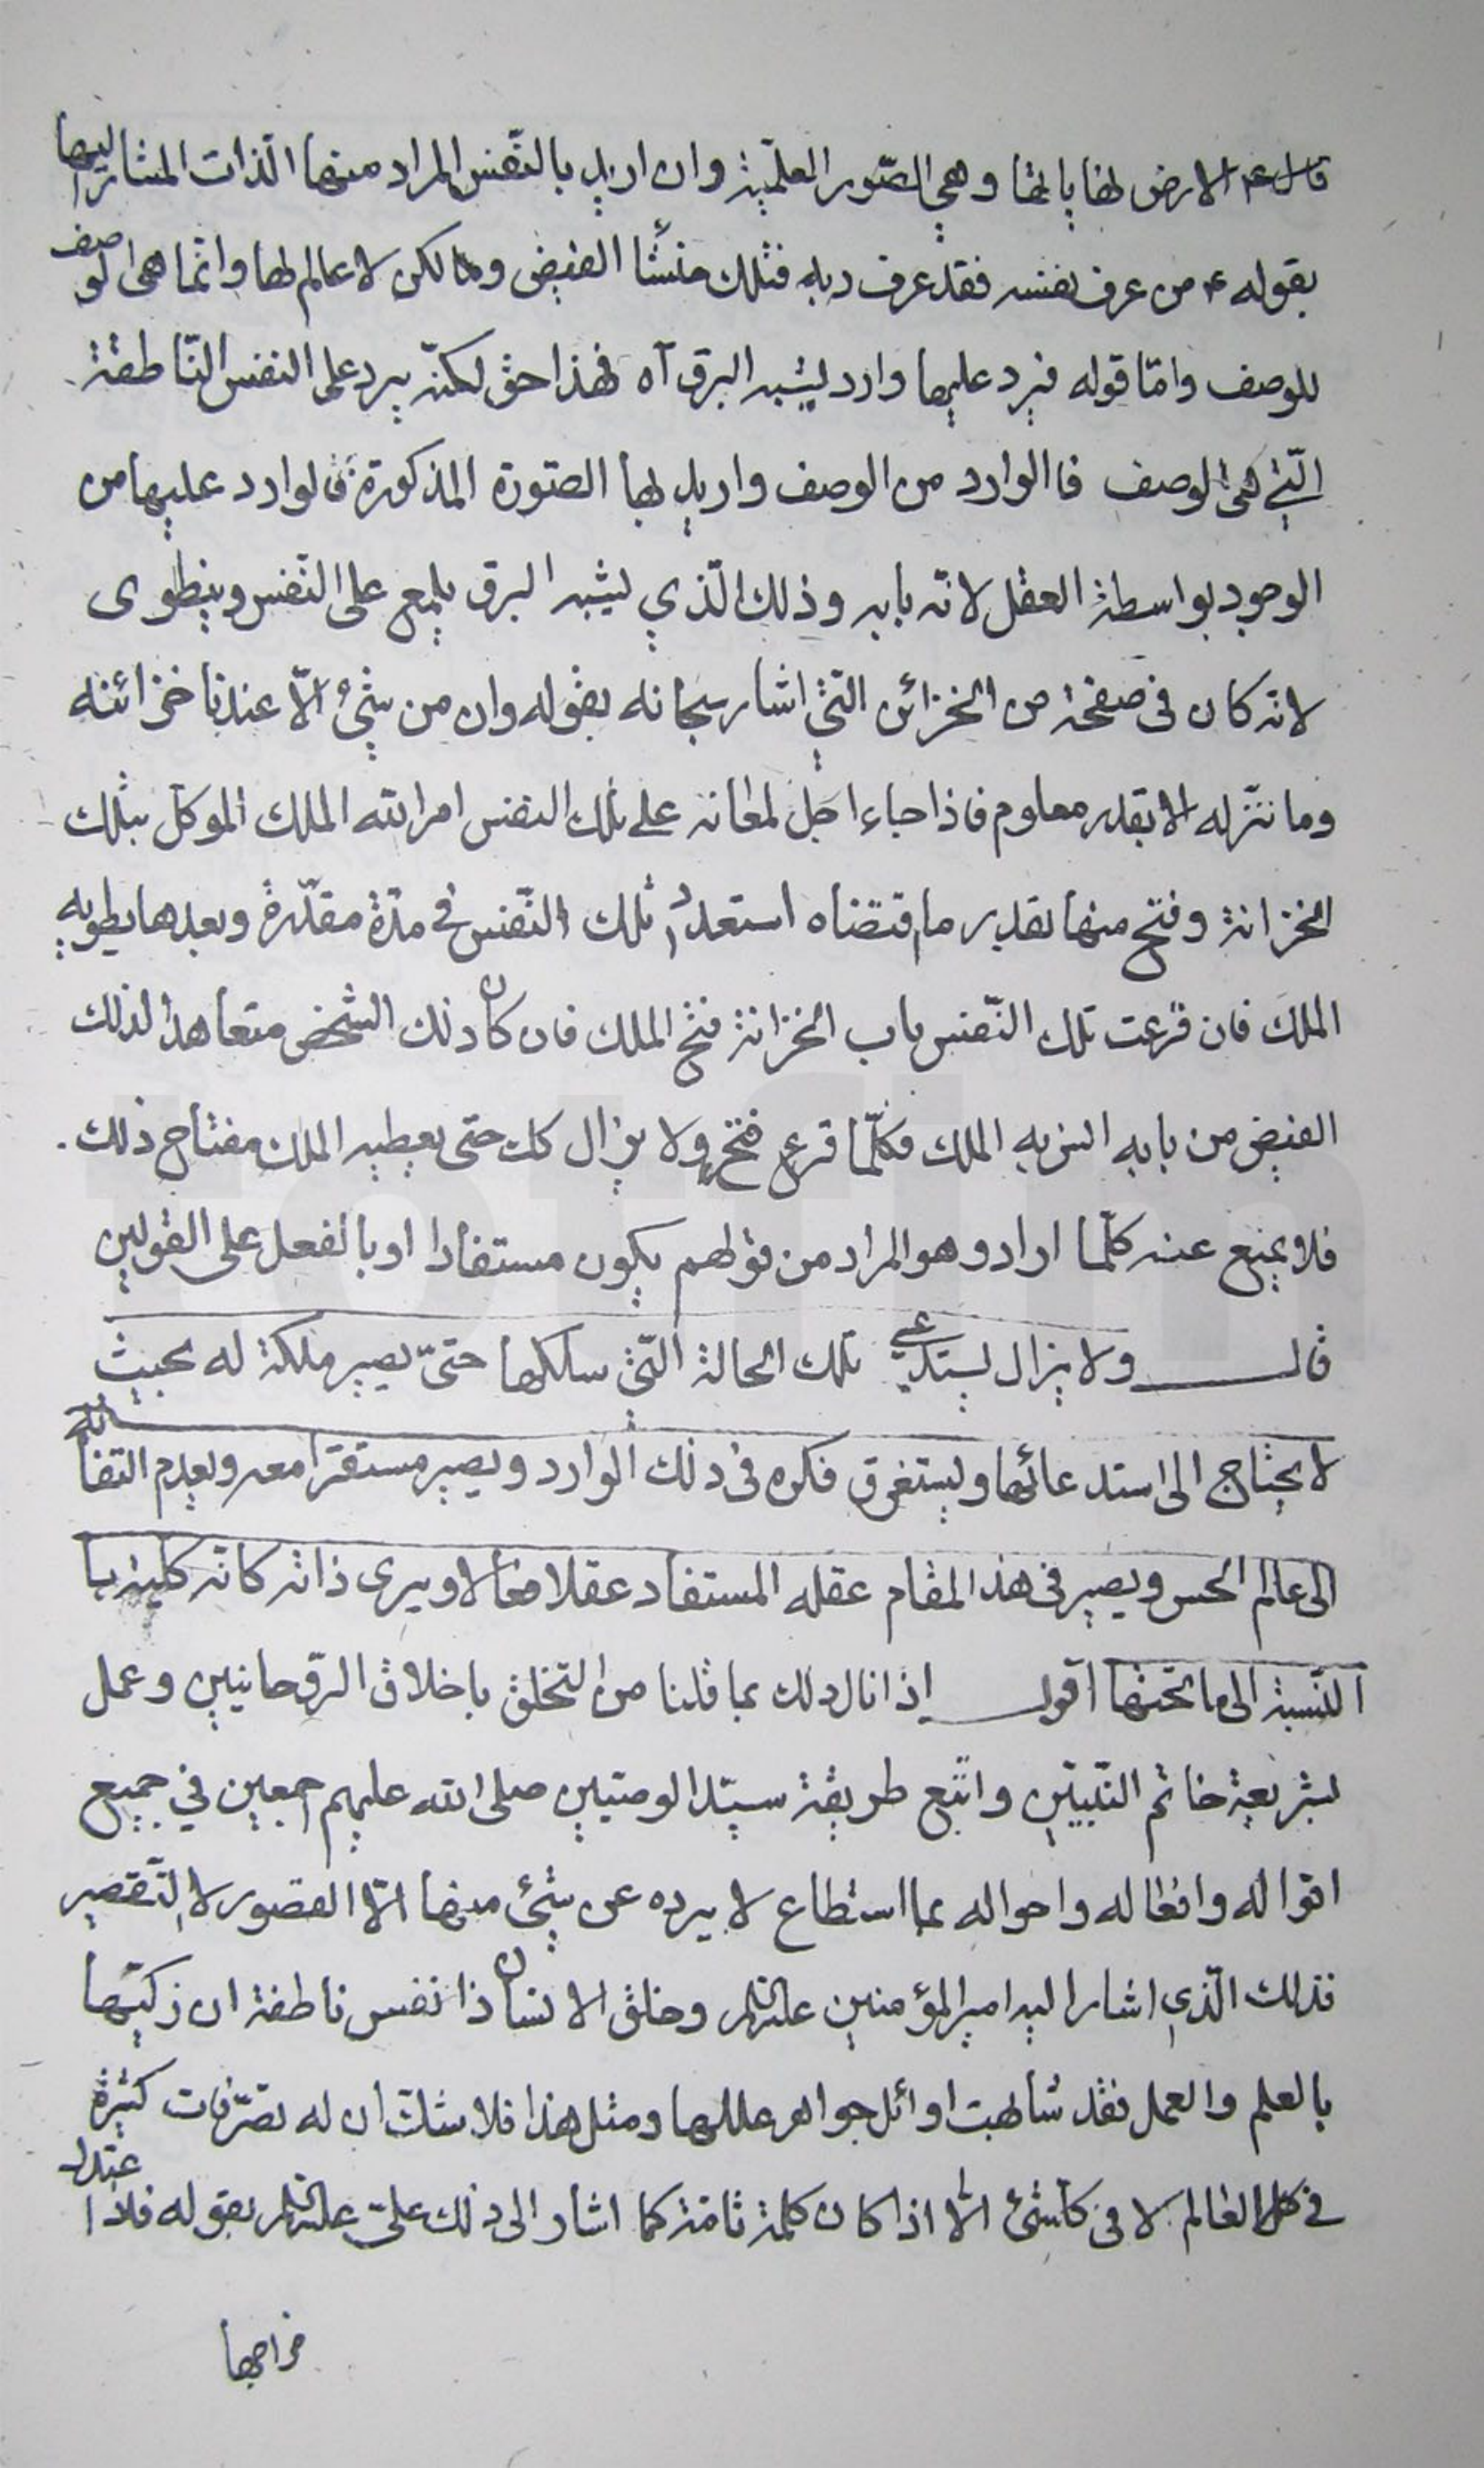 قال ع الارض لهابابها وهي الصّور العلميّة وان اريد بالنّفس المراد منها الذات المشار اليها
بقوله ع من عرف نفسه فقد عرف ربه فتلك منشأ الفيض ومالكن لا عالم لها وانما هي الوصف
للوصف وامّا قوله فيرد عليها وارد يشبه البرق آه فهذا حق لكنّه يرد على النفس النّاطقة
الّتي هي الوصف فالوارد من الوصف واريد لها الصّورة المذكورة فالوارد عليها من
الوجود بواسطة العقل لانّه بابه وذلك الّذي يشبه البرق يلمع على النّفس وينطوى
لانّه كان في صفحة من الخزائن التي اشار سبحانه بقوله وان من شئ الّا عندنا خزائنه
وما ننزّله الا بقدر معلوم فاذا جاء اجل لمعانه على تلك النفس امر الله الملك الموكّل بتلك
الخزانة وفتح منها بقدر ما اقتضاه استعداد تلك النّفس في مدّة مقدّرة وبعدها يطويه
الملك فان قرعت تلك النّفس باب الخزانة فتح الملك فان كان ذلك الشخص متعاهدا لذلك
الفيض من بابه انس به الملك فكلّما قرع فتح ولا يزال كك حتى يعطيه الملك مفتاح ذلك
فلا يمنع عنه كلّما اراد وهو المراد من قولهم يكون مستفادا او بالفعل على القولين
قال ولا يزال يستدعي تلك الحالة الّتي سلكها حتىّ يصير ملكة له بحيث
لا يحتاج الى استدعائها ويستغرق فكره في ذلك الوارد ويصير مستقرّا معه ويعدم التفاته
الى عالم الحس ويصير في هذا المقام عقله المستفاد عقلا فعالا ويرى ذاته كانّه كلية با
النّسبة الى ما تحتها اقول اذا نال ذلك بما قلنا من التخلق باخلاق الرّوحانيين وعمل
بشريعة خاتم النّبيّين واتّبع طريقة سيّد الوصيّين صلى الله عليهم اجمعين في جميع
اقواله وافعاله واحواله بما استطاع لا يرده عن شئ منها الّا القصور لا التّقصير
فذلك الّذي اشار اليه امير المؤمنين عليه السلام وخلق الانسان ذا نفس ناطقة ان زكيّها
بالعلم والعمل فقد شابهت اوائل جواهر عللها ومثل هذا فلا شك ان له تصرّفات كثيرة
في كل العالم لا في كل شئ الّا اذا كان كلمة تامّة كما اشار الى ذلك عليّ عليه السلام بقوله فاذا اعتدل
مزاجها